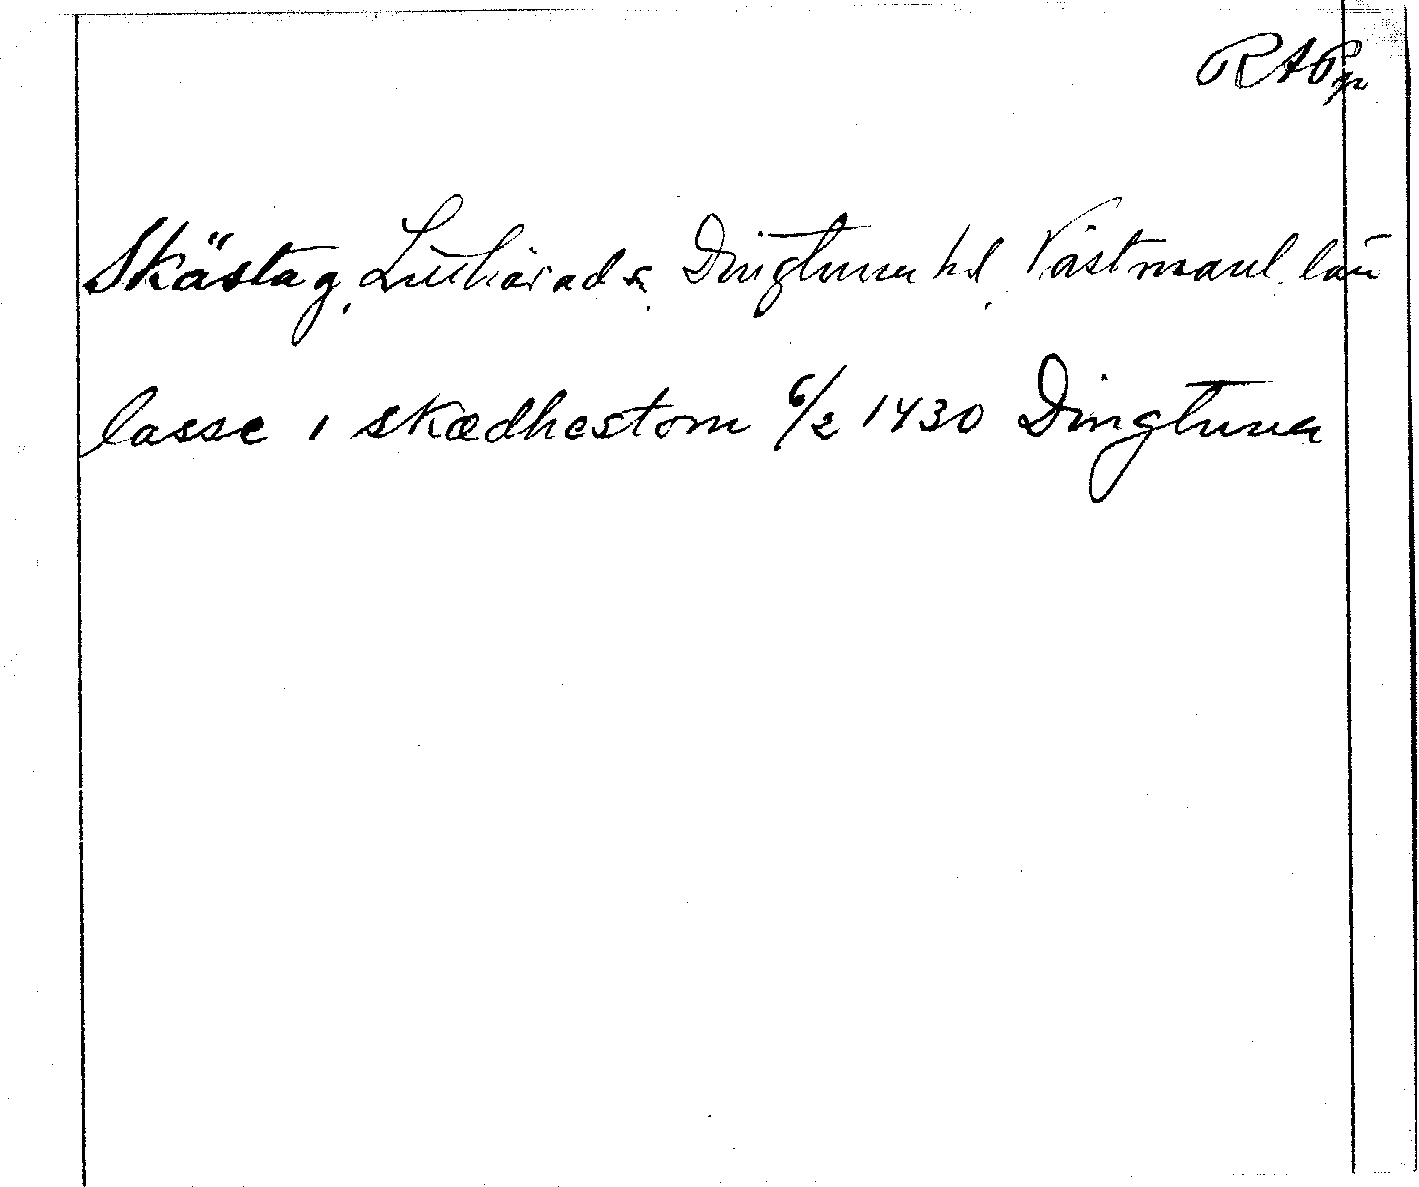 RAPp
Skästa g, Lillhärads s, Dingtuna hd, Västmanl. län
lasse i skædhestom 6/2 1430 Dingtuna